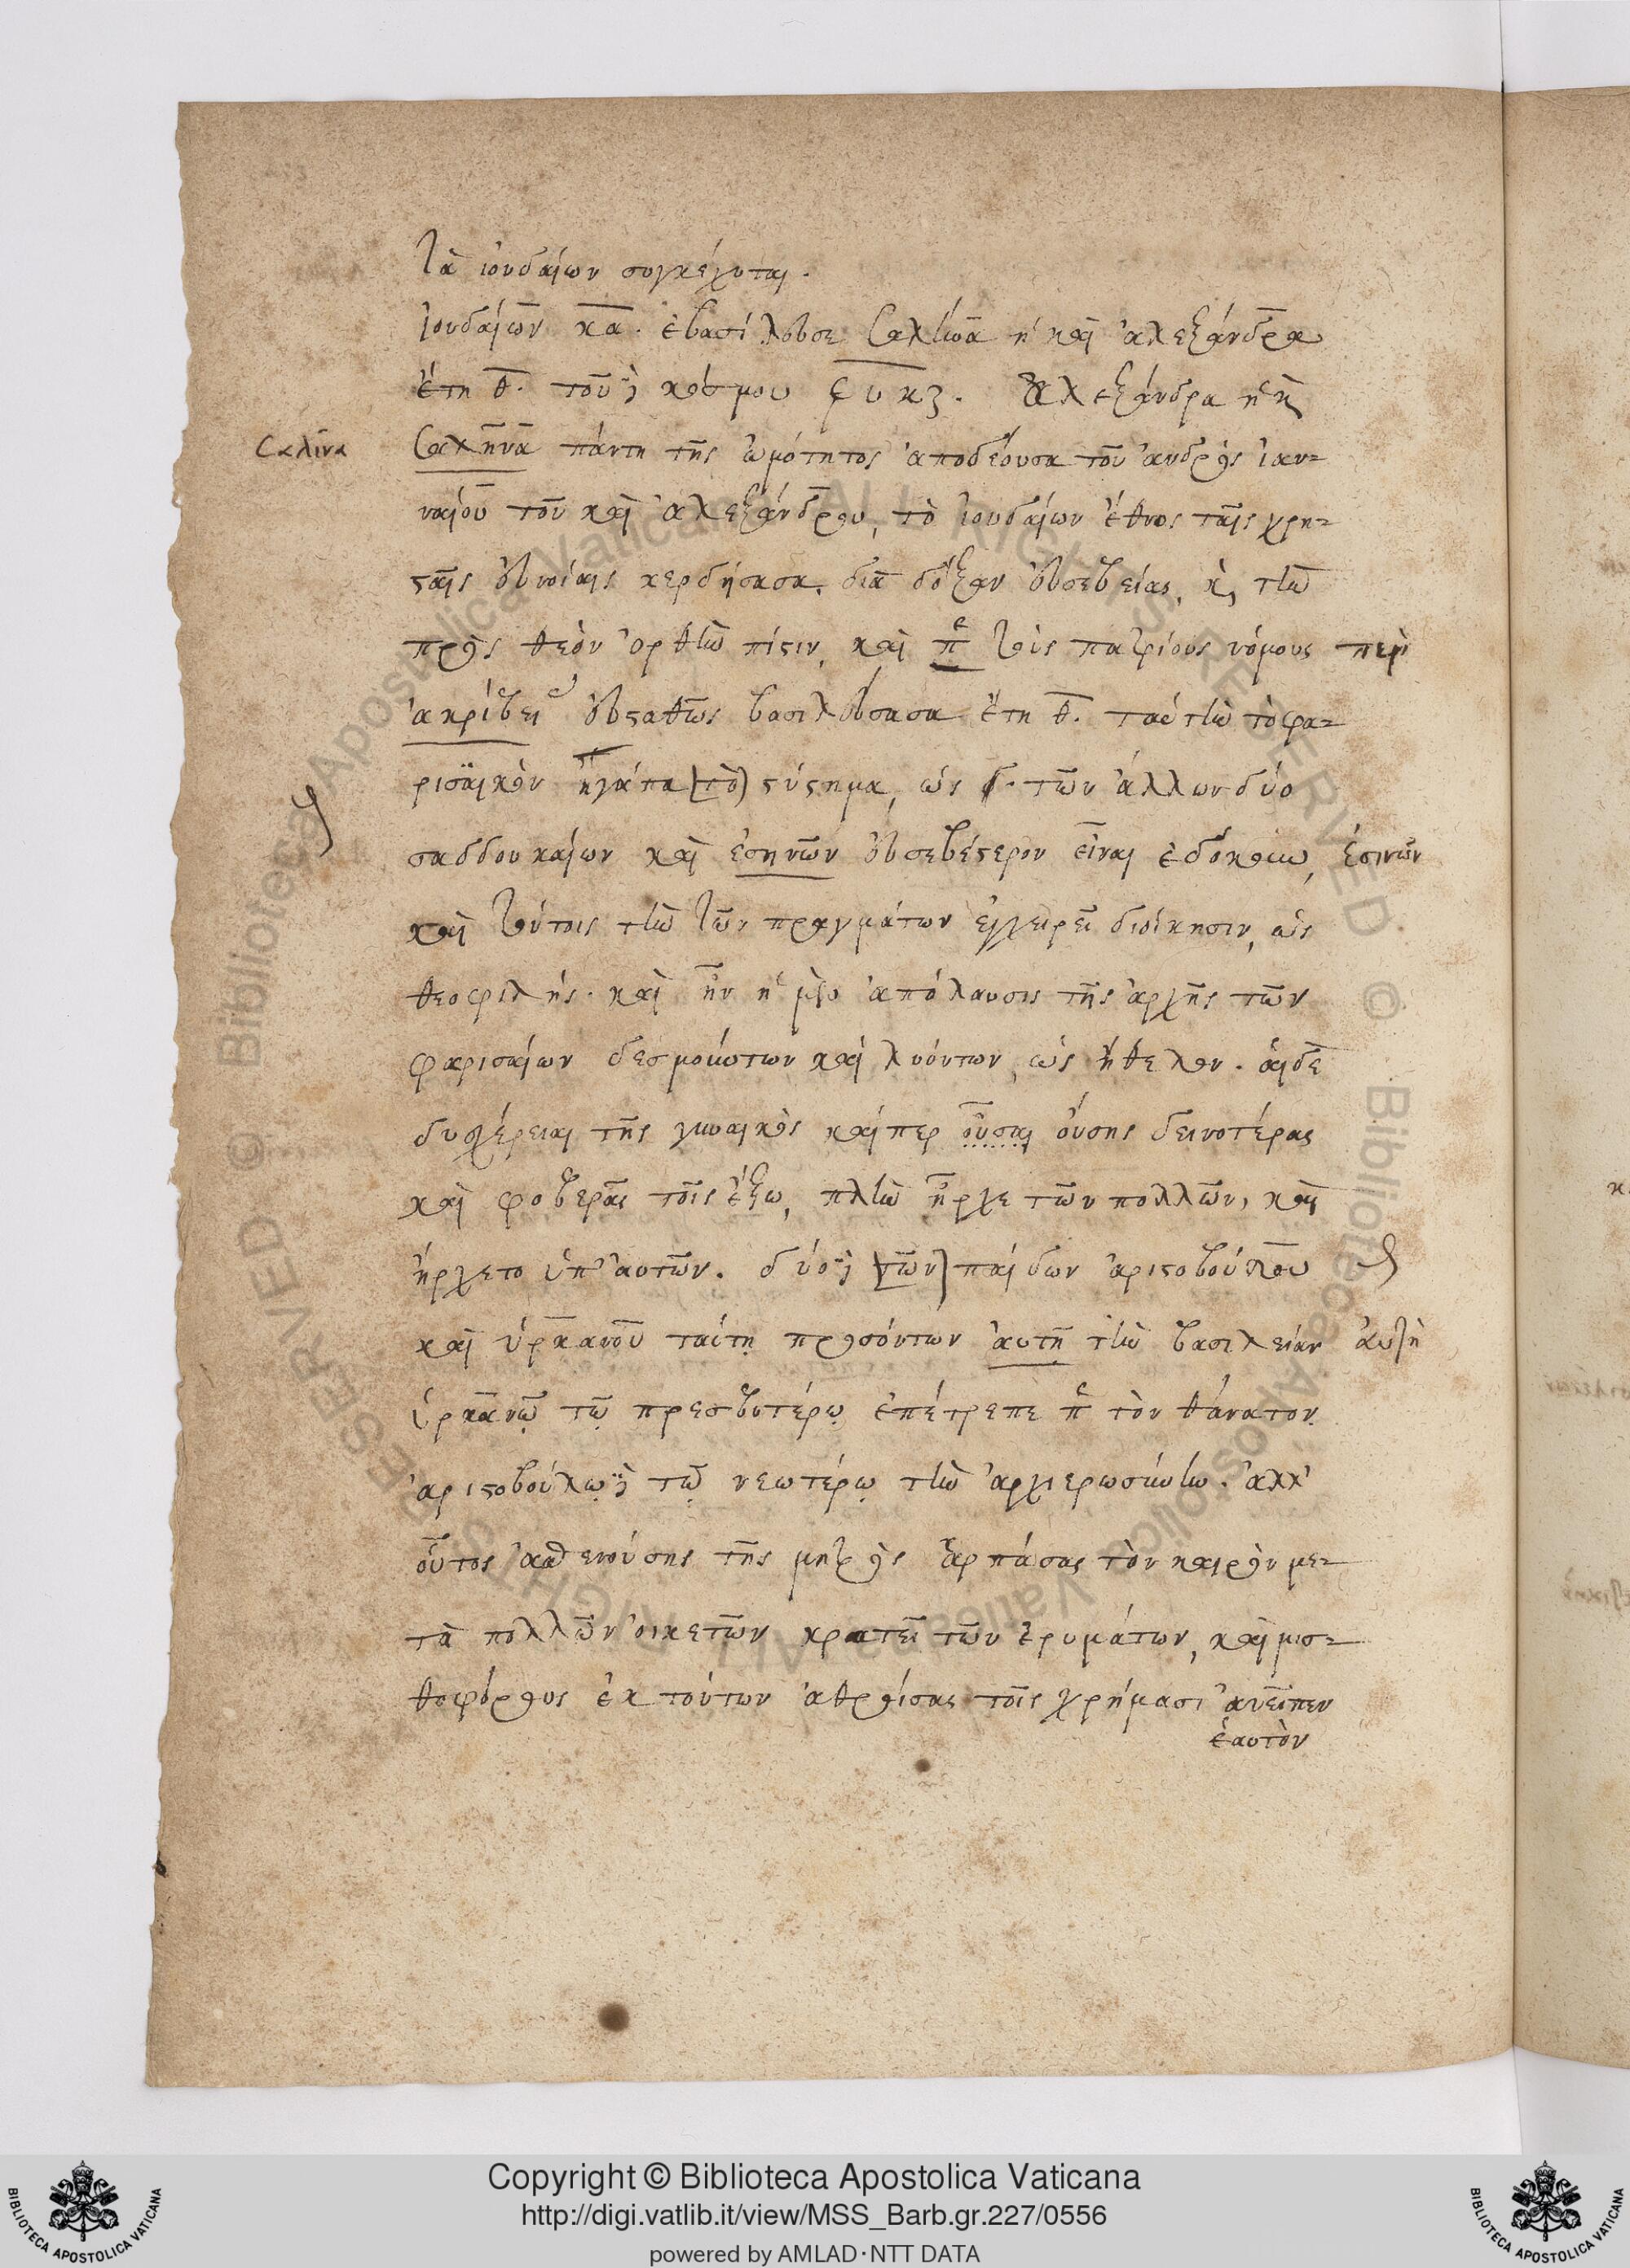 τὰ ἰουδαίων συγκέχυται.
ἰουδαίων κα. ἐβασίλευσε σαλίνα ἡ καὶ ἀλεξάνδρα
ἔτη θ. τοῦ δὲ κόσμου ςυκζ. ἀλεξάνδρα ἡ καὶ
σαλίνα
σαληνᾶ πάντη τῆς ὠμότητος ἀποδέουσα τοῦ ἀνδρὸς ἰαν-
ναίου τοῦ καὶ ἀλεξάνδρου, τὸ ἰουδαίων ἔθνος ταῖς χρη-
σταῖς εὐνοίαις κερδήσασα, διὰ δόξαν εὐσεβείας, καὶ τὴν
πρὸς θεὸν ὀρθὴν πίστιν, καὶ π τοὺς πατρίους νόμους περὶ
ἀκρίβει εὐσταθῶς βασιλεύσασα ἔτη θ. ταύτην τὸ φα-
ρισαϊκὸν ἠγάπα (τὸ) σύστημα, ὡς τῶν ἄλλων δύο
σαδδουκαίων καὶ ἐσηνῶν εὐσεβέστερον εἶναι ἐδόκουν, ἐσινῶν
καὶ τούτοις τὴν τῶν πραγμάτων ἐγχειρεῖ διοίκησιν, ὡς
θεοφιλής. καὶ ἦν ἡ μὲν ἀπόλαυσις τῆς ἀρχῆς τῶν
φαρισαίων δεσμούντων καὶ λυόντων, ὡς ἤθελον. αἱ δὲ
δυσχέρειαι τῆς γυναικὸς καίπερ οὖσαι οὔσης δεινοτέρας
καὶ φοβερᾶς τοῖς ἔξω, πλὴν ἦρχε τῶν πολλῶν, καὶ
ἤρχετο ὑπ' αὐτῶν. δύο δὲ (τῶν) παίδων ἀριστοβούλου
καὶ ὑρκανοῦ ταύτῃ προσόντων αὐτῇ τὴν βασιλείαν αὐτὴ
ὑρκανῷ τῷ πρεσβυτέρῳ ἐπέτρεπε π τὸν θάνατον
ἀριστοβούλῳ δὲ τῷ νεωτέρῳ τὴν ἀρχιερωσύνην. ἀλλ'
οὗτος ἀσθενούσης τῆς μητρὸς ἁρπάσας τὸν καιρὸν με-
τὰ πολλῶν οἰκετῶν κρατεῖ τῶν ἐρυμάτων, καὶ μισ-
θοφόρους ἐκ τούτων ἀθροίσας τοῖς χρήμασι ἀνεῖπεν
ἑαυτὸν
Copyright © Biblioteca Apostolica Vaticana
http://digi.vatlib.it/view/MSS_Barb.gr.227/0556
powered by AMLAD·NTT DATA